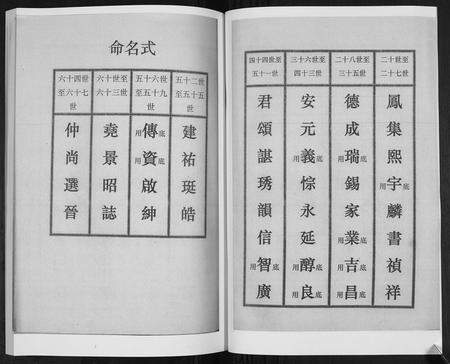 命名式
二十世至二十七世
鳳
集
熙
用宇底
麟
書
禎
祥
二十八世至三十五世
德
成
用瑞底
錫
家
用業底
用吉底
用昌底
三十六世至四十三世
安
元
用義底
悰
永
延
用醇底
用良底
四十四世至五十一世
君
頌
諶
琇
韻
信
用智底
廣
五十二世至五十五世
建
祐
珽
皓
五十六世至五十九世
用傳底
用資底
啟
紳
六十世至六十三世
堯
景
昭
誌
六十四世至六十七世
仲
尚
選
晉